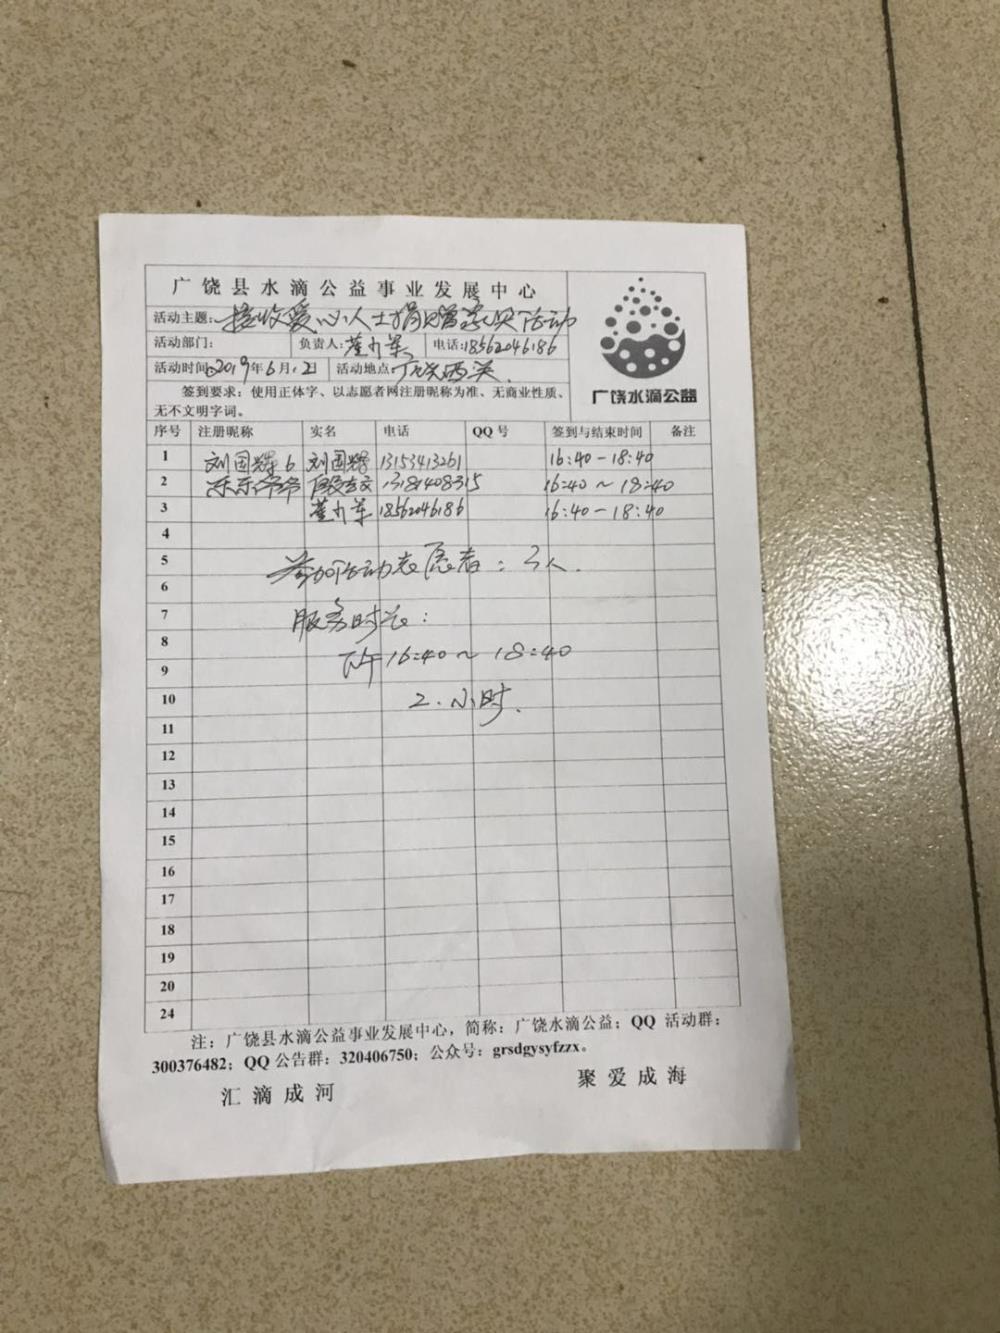 广饶县水滴公益事业发展中心
活动主题:接收爱心人士捐赠家具活动
活动部门: 负责人:董少军 电话:18562046186
活动时间:2019年6月12日 活动地点:广饶西关.
签到要求:使用正体字、以志愿者网注册昵称为准、无商业性质、
无不文明字词。
广饶水滴公益
序号 注册昵称 实名 电话 QQ号 签到与结束时间 备注
1 刘国辉6 刘国辉 13153413261 16:40-18:40
2 东东爷爷 13181408315 16:40~18:40
3 董少军 18562046186 16:40-18:40
4
5 参加活动志愿者:3人.
6
7 服务时长:
8
9 下午16:40~18:40
10 2.小时.
11
12
13
14
15
16
17
18
19
20
24
注:广饶县水滴公益事业发展中心,简称:广饶水滴公益;QQ 活动群:
300376482;QQ 公告群:320406750;公众号:grsdgysyfzzx。
汇滴成河 聚爱成海